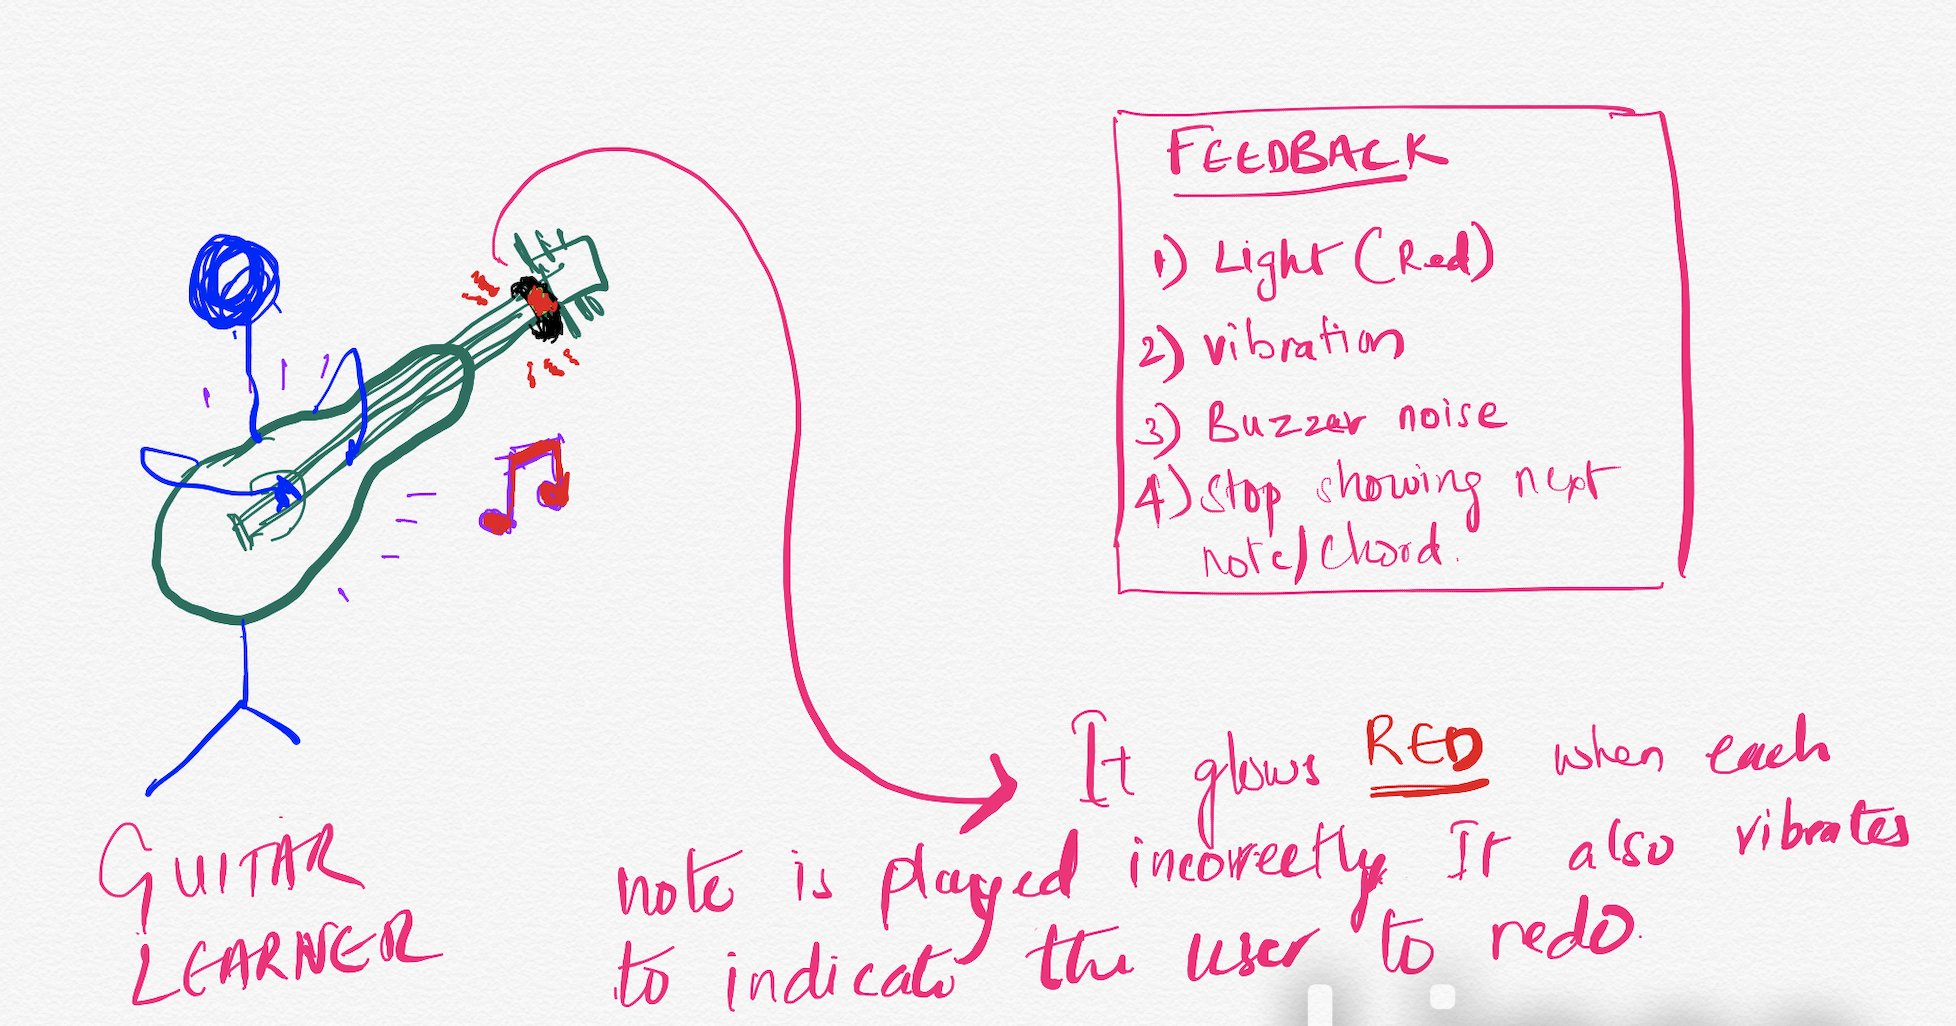 FEEDBACK
1) Light (Red)
2) vibration
3) Buzzer noise
4) Stop showing next
note/chord.
It glows RED when each
note is played incorrectly. It also vibrates
to indicate the user to redo.
GUITAR
LEARNER